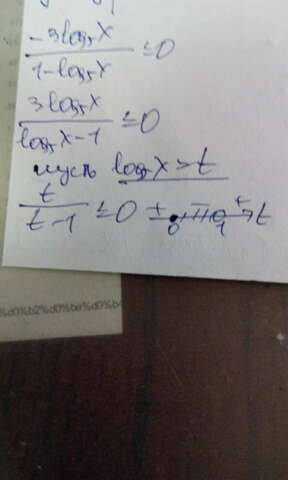 -3log₅x / 1-log₅x ≤0
3log₅x / log₅x-1 ≤0
пусть log₅x=t
t / t-1 ≤0 + - + 0 1 t
%d0%b2%d0%ba%d0%b